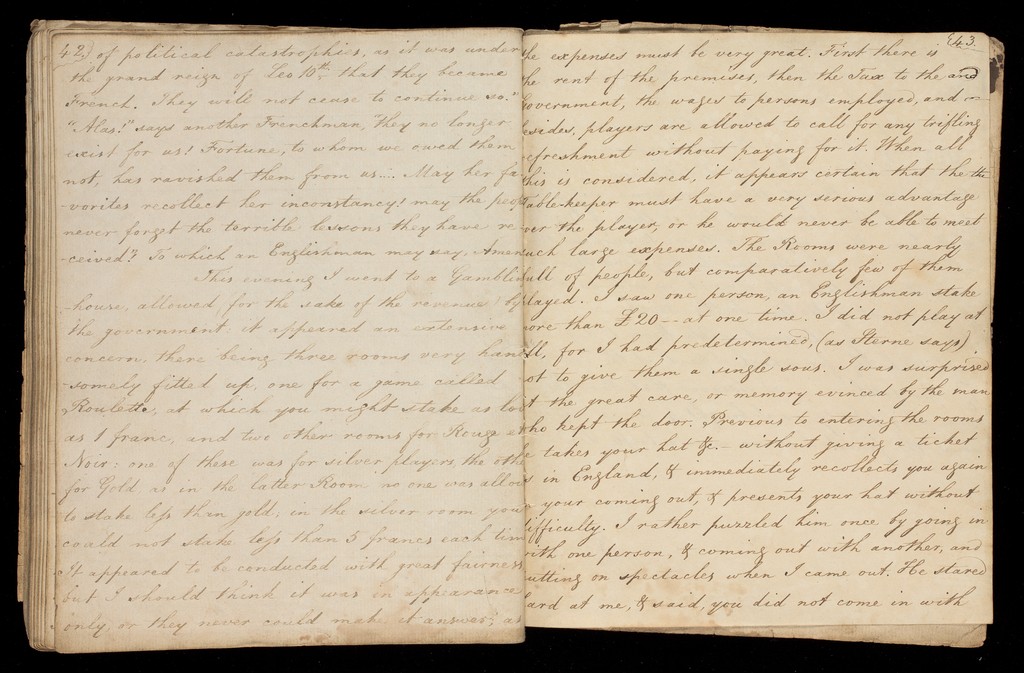 42) of political catastrophies, as it was under
the grand reign of Leo 10th that they became
French. They will not cease to continue so."
"Alas!" says another Frenchman, "they no longer
exist for us! Fortune, to whom we owed them
not, has ravished them from us.... May her fa-
vorites recollect her inconstancy! may the peop
never forget the terrible lessons they have re
-ceived"! To which an Englishman may say, Amen
This evening I went to a Gamblin
-house, allowed (for the sake of the revenue) by
the government; it appeared an extensive
concern, there being three rooms very hand
-somely fitted up, one for a game called
Roulette, at which you might stake as low
as 1 franc, and two other rooms for Rouge et
Noir: one of these was for silver players, the othe
for Gold, as in the latter Room no one was allow
to stake less than gold; in the silver room you
could not stake less than 5 francs each tim
It appeared to be conducted with great fairness
but I should think it was in appearance
only, or they never could make it answer; as
(43.
he expenses must be very great. First there is
he rent of the premises, then the Tax to the and
overnment, the wages to persons employed, and
esides, players are allowed to call for any trifling
efreshment without paying for it. When all
this is considered, it appears certain that the the
Table-keeper must have a very serious advantage
over the player, or he would never be able to meet
uch large expenses. The Rooms were nearly
ull of people, but comparatively few of them
layed. I saw one person, an Englishman stake
ore than £20 — at one time. I did not play at
ll, for I had predetermined, (as Sterne says)
ot to give them a single sous. I was surprised
t the great care, or memory evinced by the man
ho kept the door. Previous to entering the rooms
e takes your hat &c. — without giving a ticket
s in England, & immediately recollects you again
your coming out, & presents your hat without
ifficulty. I rather puzzled him once by going in
ith one person, & coming out with another, and
utting on spectacles when I came out. He stared
ard at me, & said, you did not come in with